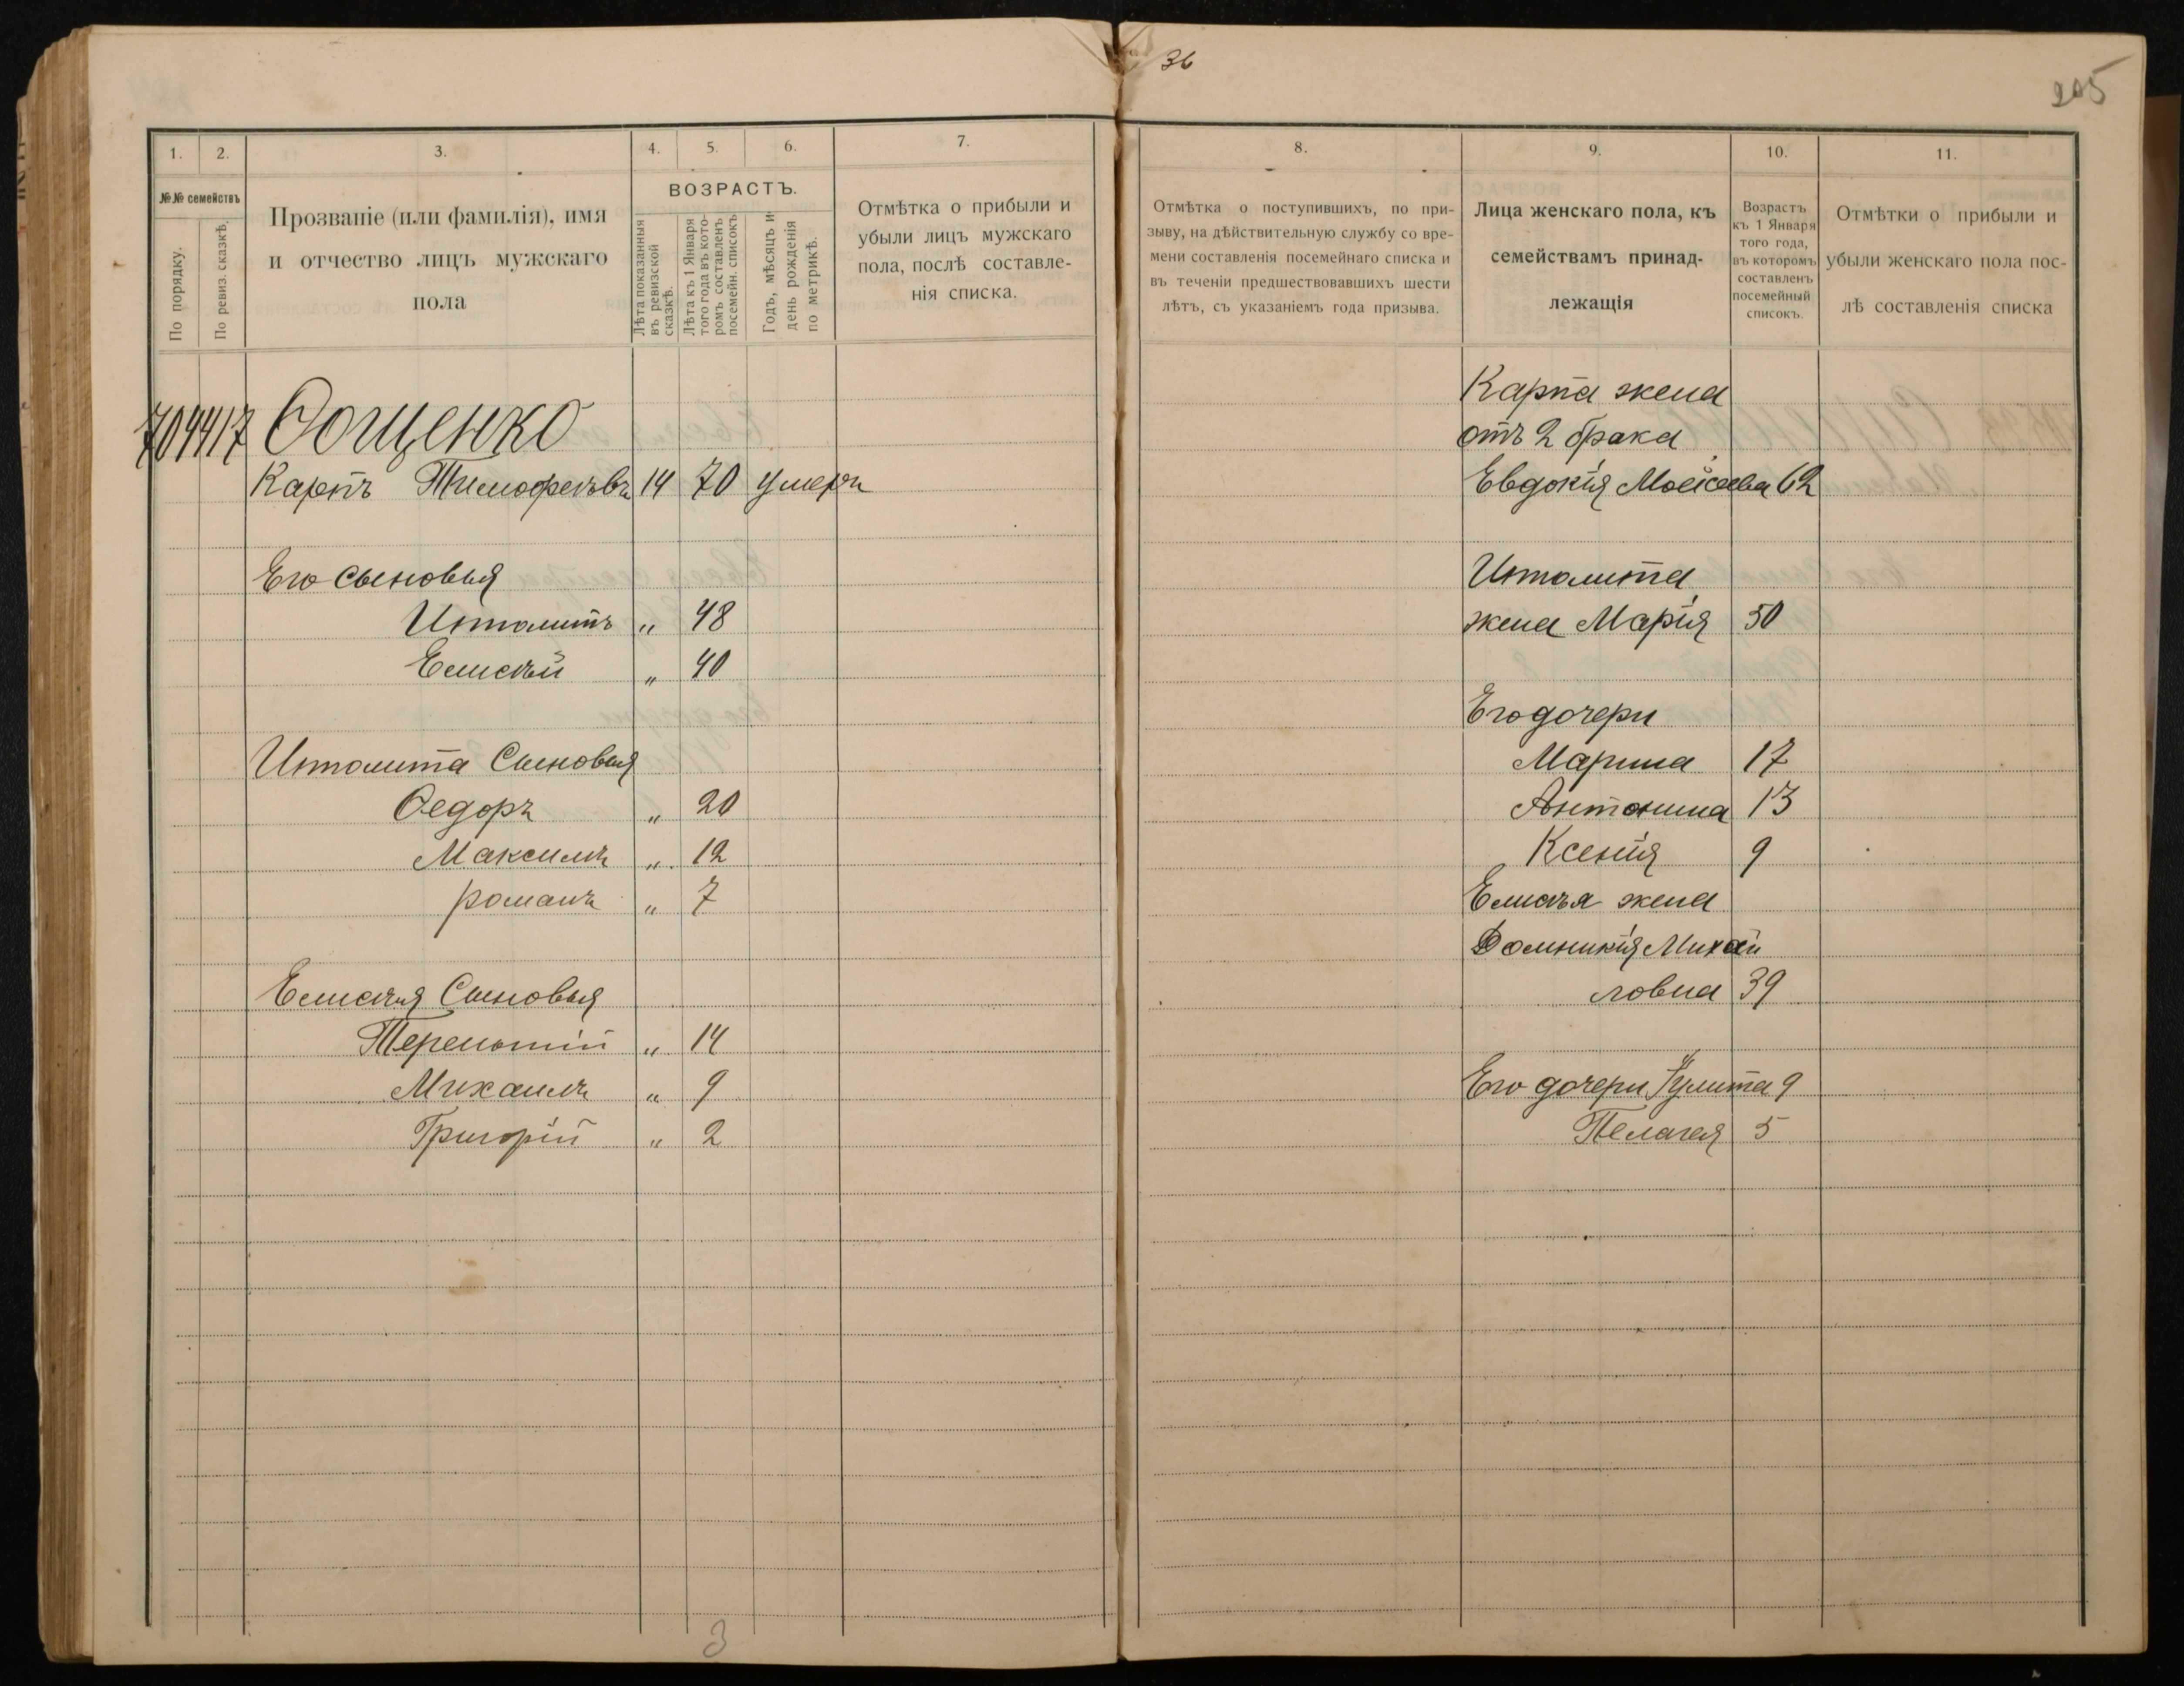 36
205
1.
2.
3.
4.
5.
6.
7.
№№ семействъ
По порядку.
По ревиз. сказкѣ.
Прозваніе (или фамилія), имя
и отчество лицъ мужскаго
пола
ВОЗРАСТЪ.
Лѣта показанныя
въ ревизской
сказкѣ.
Лѣта къ 1 Января
того года въ кото-
ромъ составленъ
посемейн. списокъ
Годъ, мѣсяцъ и
день рожденія
по метрикѣ.
Отмѣтка о прибыли и
убыли лицъ мужскаго
пола, послѣ составле-
нія списка.
Ѳощенко
Карпъ Тимофеевъ 14 70 умеръ
Его сыновья
Ипполитъ „ 48
Елисѣй „ 40
Ипполита Сыновья
Ѳедоръ „ 20
Максимъ „ 12
романъ „ 7
Елисѣя Сыновья
Терентій „ 14
Михаилъ „ 9
Григорій „ 2
3
8.
9.
10.
11.
Отмѣтка о поступившихъ, по при-
зыву, на дѣйствительную службу со вре-
мени составленія посемейнаго списка и
въ теченіи предшествовавшихъ шести
лѣтъ, съ указаніемъ года призыва.
Лица женскаго пола, къ
семействамъ принад-
лежащія
Возрастъ
къ 1 Января
того года,
въ которомъ
составленъ
посемейный
списокъ.
Отмѣтки о прибыли и
убыли женскаго пола пос-
лѣ составленія списка
Карпа жена
отъ 2 брака
Евдокія Моисеева 62
Ипполита
жена Марія 50
Его дочери
Марина 17
Антонина 13
Ксенія 9
Елисѣя жена
Домникія Михай
ловна 39
Его дочери 9
Пелагея 5